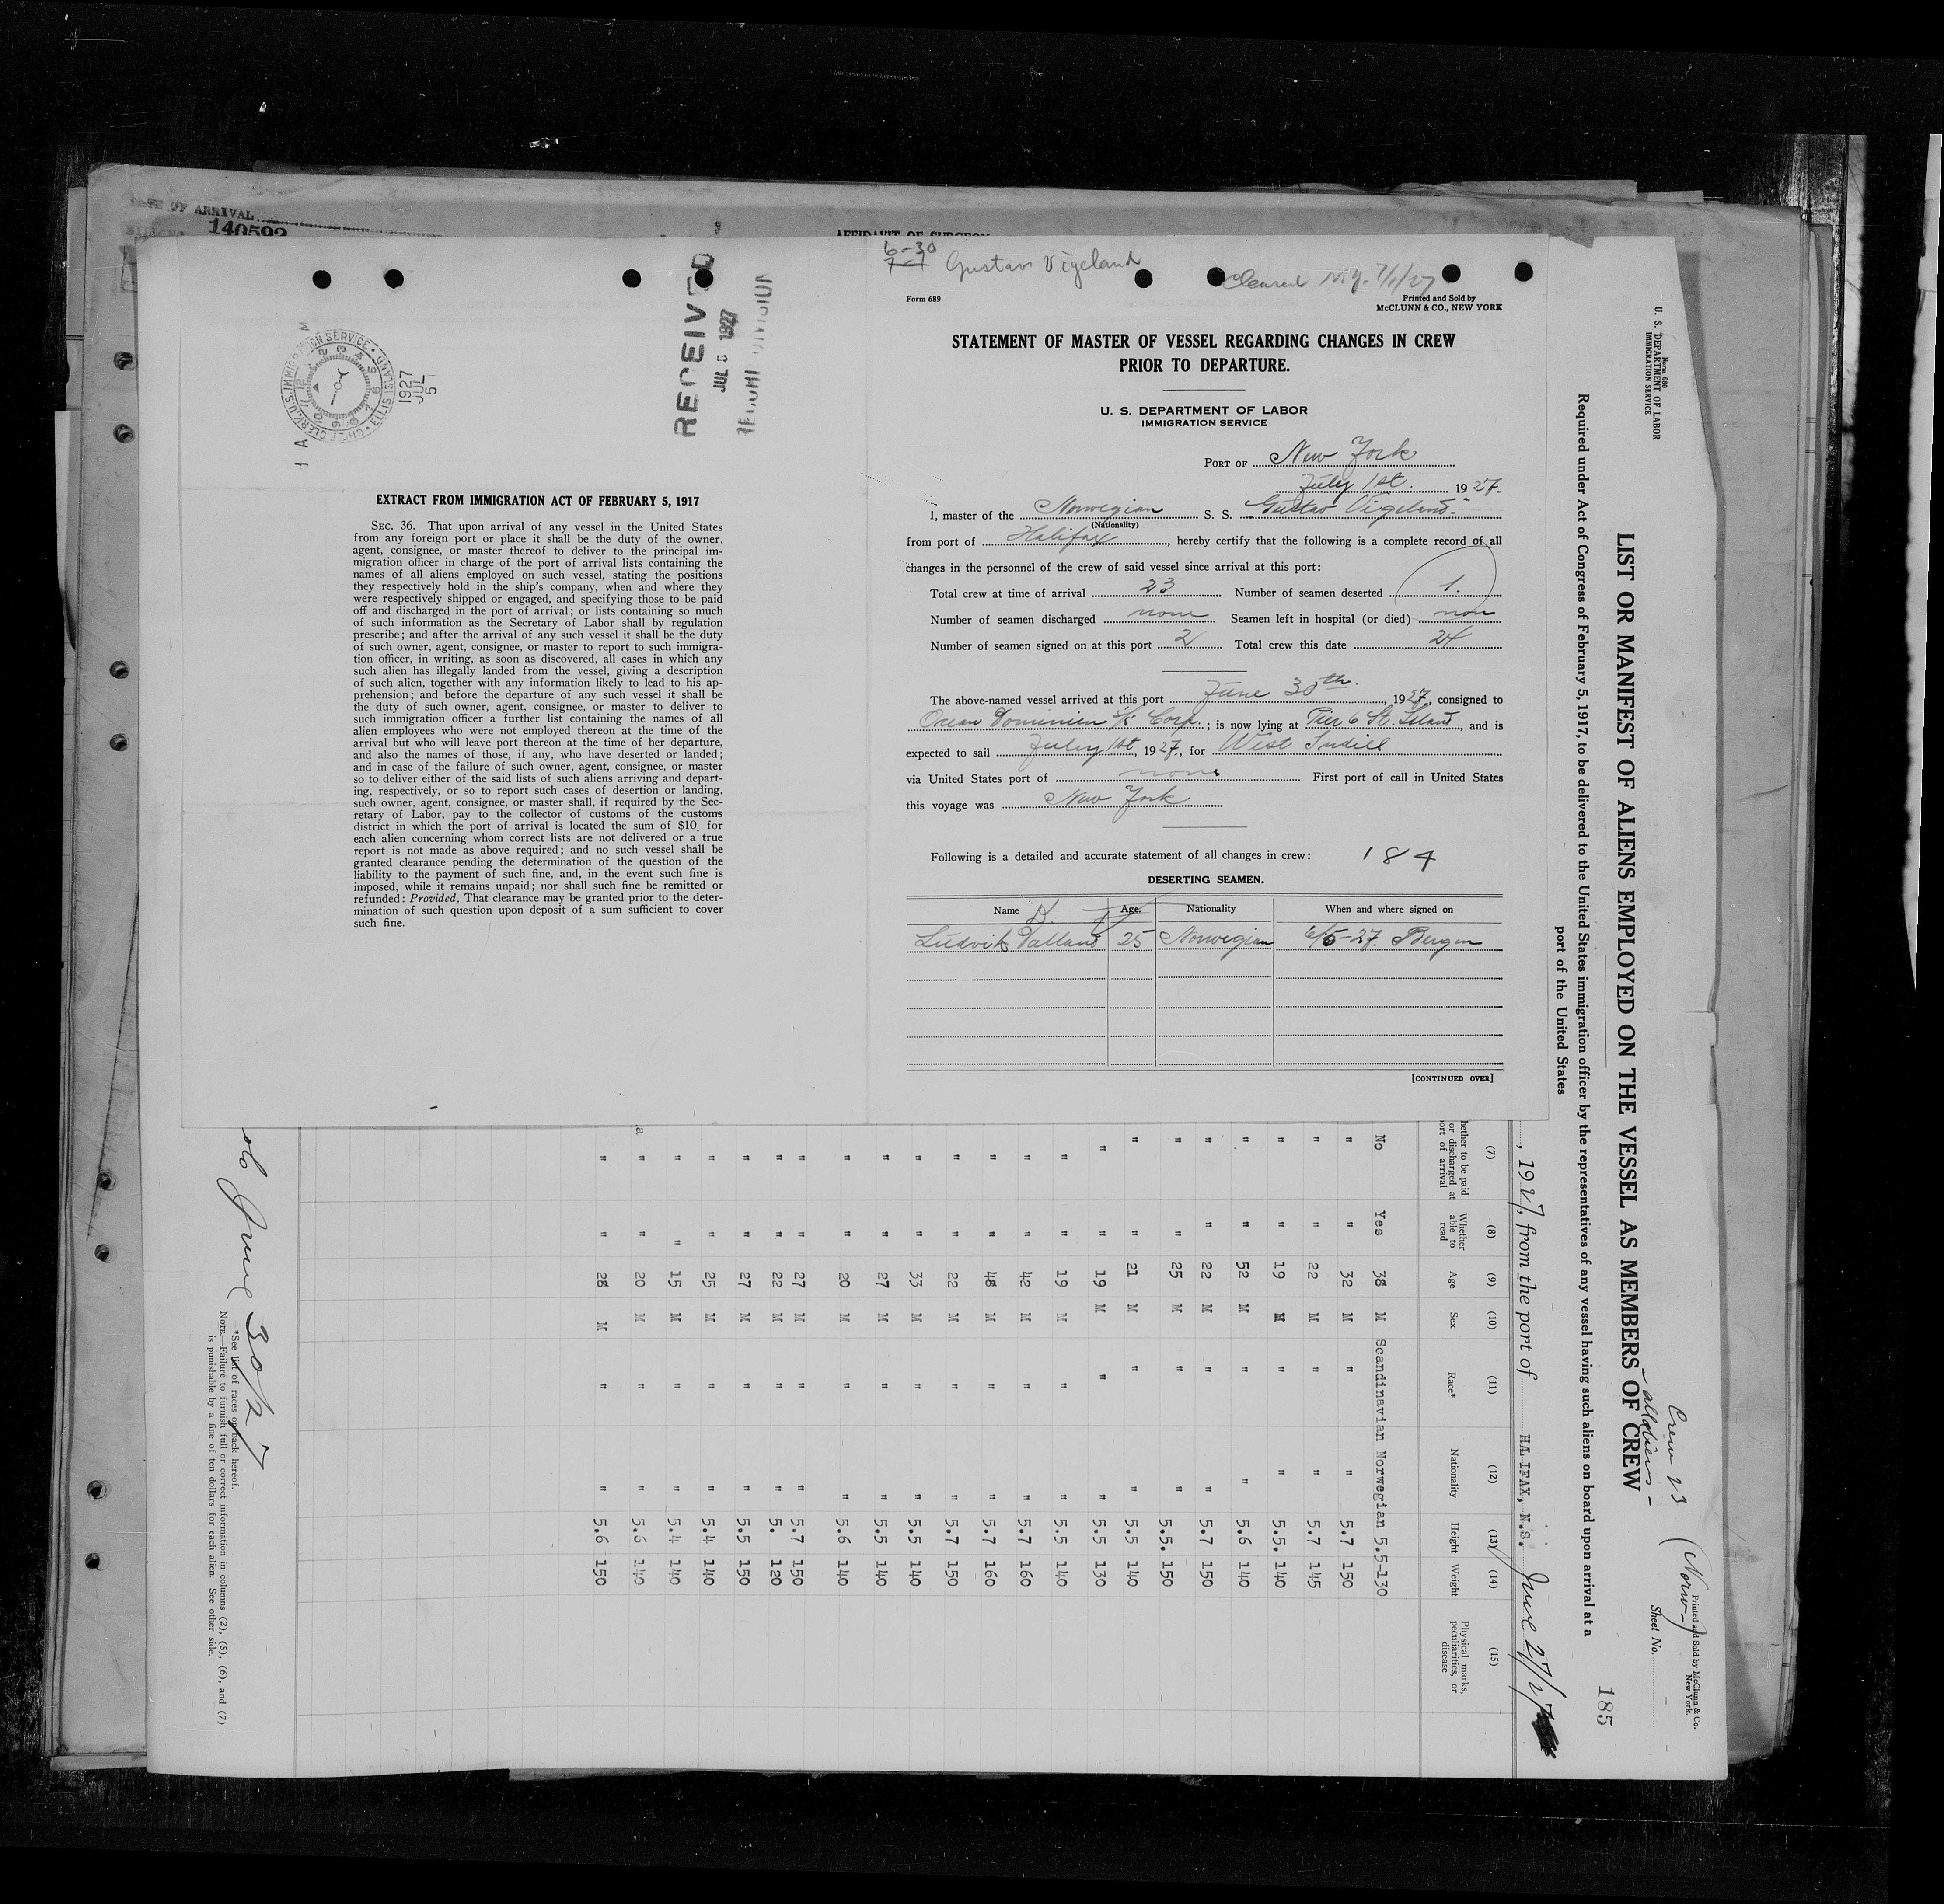 DATE OF ARRIVAL
140592
AFFIDAVIT OF SURGEON
6-30
7-1 Gustav Vigeland
Cleared N.Y. 7/1/27
CHIEF CLERK, U.S. IMMIGRATION SERVICE, ELLIS ISLAND
1927
JUL
5
RECEIVED
JUL 5 1927
EXTRACT FROM IMMIGRATION ACT OF FEBRUARY 5, 1917
SEC. 36. That upon arrival of any vessel in the United States
from any foreign port or place it shall be the duty of the owner,
agent, consignee, or master thereof to deliver to the principal im-
migration officer in charge of the port of arrival lists containing the
names of all aliens employed on such vessel, stating the positions
they respectively hold in the ship's company, when and where they
were respectively shipped or engaged, and specifying those to be paid
off and discharged in the port of arrival; or lists containing so much
of such information as the Secretary of Labor shall by regulation
prescribe; and after the arrival of any such vessel it shall be the duty
of such owner, agent, consignee, or master to report to such immigra-
tion officer, in writing, as soon as discovered, all cases in which any
such alien has illegally landed from the vessel, giving a description
of such alien, together with any information likely to lead to his ap-
prehension; and before the departure of any such vessel it shall be
the duty of such owner, agent, consignee, or master to deliver to
such immigration officer a further list containing the names of all
alien employees who were not employed thereon at the time of the
arrival but who will leave port thereon at the time of her departure,
and also the names of those, if any, who have deserted or landed;
and in case of the failure of such owner, agent, consignee, or master
so to deliver either of the said lists of such aliens arriving and depart-
ing, respectively, or so to report such cases of desertion or landing,
such owner, agent, consignee, or master shall, if required by the Sec-
retary of Labor, pay to the collector of customs of the customs
district in which the port of arrival is located the sum of $10 for
each alien concerning whom correct lists are not delivered or a true
report is not made as above required; and no such vessel shall be
granted clearance pending the determination of the question of the
liability to the payment of such fine, and, in the event such fine is
imposed, while it remains unpaid; nor shall such fine be remitted or
refunded: Provided, That clearance may be granted prior to the deter-
mination of such question upon deposit of a sum sufficient to cover
such fine.
Form 689
Printed and Sold by
McCLUNN & CO., NEW YORK
STATEMENT OF MASTER OF VESSEL REGARDING CHANGES IN CREW
PRIOR TO DEPARTURE.
U. S. DEPARTMENT OF LABOR
IMMIGRATION SERVICE
PORT OF New York
July 1st. 1927.
I, master of the Norwegian S. S. "Gustav Vigeland."
(Nationality)
from port of Halifax, hereby certify that the following is a complete record of all
changes in the personnel of the crew of said vessel since arrival at this port:
Total crew at time of arrival 23 Number of seamen deserted 1.
Number of seamen discharged none Seamen left in hospital (or died) non
Number of seamen signed on at this port 2 Total crew this date 24
The above-named vessel arrived at this port June 30th. , 1927, consigned to
Ocean Dominion S/S Corp.; is now lying at Pier 6 St. Island, and is
expected to sail July 1st, 1927, for West Indies
via United States port of none First port of call in United States
this voyage was New York
Following is a detailed and accurate statement of all changes in crew: 184
DESERTING SEAMEN.
Name Age. Nationality When and where signed on
Ludvik Dalland 25 Norwegian 6/5-27. Bergen
[CONTINUED OVER]
Form 680
U. S. DEPARTMENT OF LABOR
IMMIGRATION SERVICE
Crew 23 (Norw-)
- all aliens -
Printed and Sold by McClunn & Co.
New York.
Sheet No.
185
LIST OR MANIFEST OF ALIENS EMPLOYED ON THE VESSEL AS MEMBERS OF CREW
Required under Act of Congress of February 5, 1917, to be delivered to the United States immigration officer by the representatives of any vessel having such aliens on board upon arrival at a
port of the United States
, 1927, from the port of HALIFAX, N.S. June 27/27
(7) (8) (9) (10) (11) (12) (13) (14) (15)
hether to be paid
or discharged at
ort of arrival
Whether
able to
read
Age Sex Race* Nationality Height Weight
Physical marks,
peculiarities, or
disease
No Yes 38 M Scandinavian Norwegian 5.5-130
" " 32 M " " 5.7 150
" " 22 M " " 5.7 145
" " 19 M " " 5.5. 140
" " 52 M " " 5.6 140
" " 22 M " " 5.7 150
" " 25 M " " 5.5. 150
" " 21 M " " 5.5 140
" " 19 M " " 5.5 130
" " 19 M " " 5.5 140
" " 42 M " " 5.7 160
" " 48 M " " 5.7 160
" " 22 M " " 5.7 150
" " 33 M " " 5.5 140
" " 27 M " " 5.5 140
" " 20 M " " 5.6 140
" " 27 M " " 5.7 150
" " 22 M " " 5. 120
" " 27 M " " 5.5 150
" " 25 M " " 5.4 140
" " 15 M " " 5.4 140
" " 20 M " " 5.6 140
" " 28 M " " 5.6 150
June 30/27
*See list of races on back hereof.
NOTE.—Failure to furnish full or correct information in columns (2), (5), (6), and (7)
is punishable by a fine of ten dollars for each alien. See other side.